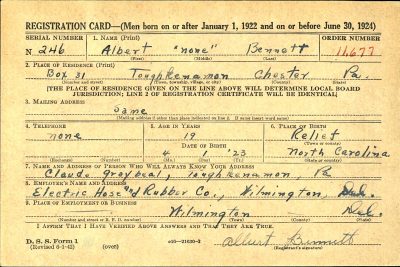 REGISTRATION CARD—(Men born on or after January 1, 1922 and on or before June 30, 1924)
SERIAL NUMBER 1. NAME (Print) ORDER NUMBER
N 246 Albert "none" Bennett 11,677
(First) (Middle) (Last)
2. PLACE OF RESIDENCE (Print)
Box 31 Toughkenamon Chester Pa.
(Number and street) (Town, township, village, or city) (County) (State)
[THE PLACE OF RESIDENCE GIVEN ON THE LINE ABOVE WILL DETERMINE LOCAL BOARD
JURISDICTION; LINE 2 OF REGISTRATION CERTIFICATE WILL BE IDENTICAL]
3. MAILING ADDRESS
Same
[Mailing address if other than place indicated on line 2. If same insert word same]
4. TELEPHONE 5. AGE IN YEARS 6. PLACE OF BIRTH
none 19 Relief
DATE OF BIRTH (Town or county)
4 1 '23 North Carolina
(Exchange) (Number) (Mo.) (Day) (Yr.) (State or country)
7. NAME AND ADDRESS OF PERSON WHO WILL ALWAYS KNOW YOUR ADDRESS
Claude Graybeal, Toughkenamon, Pa
8. EMPLOYER'S NAME AND ADDRESS
Electric Hose and Rubber Co., Wilmington, Del.
9. PLACE OF EMPLOYMENT OR BUSINESS
Wilmington Del.
(Number and street or R. F. D. number) (Town) (County) (State)
I AFFIRM THAT I HAVE VERIFIED ABOVE ANSWERS AND THAT THEY ARE TRUE.
D. S. S. Form 1 (over) Albert Bennett
(Registrant's signature)